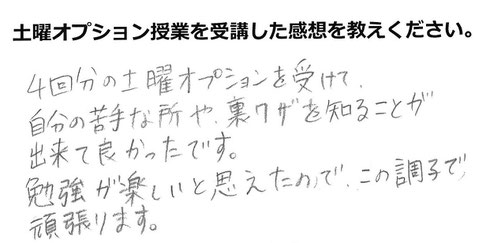 土曜オプション授業を受講した感想を教えください。
4回分の土曜オプションを受けて、
自分の苦手な所や、裏ワザを知ることが
出来て良かったです。
勉強が楽しいと思えたので、この調子で
頑張ります。